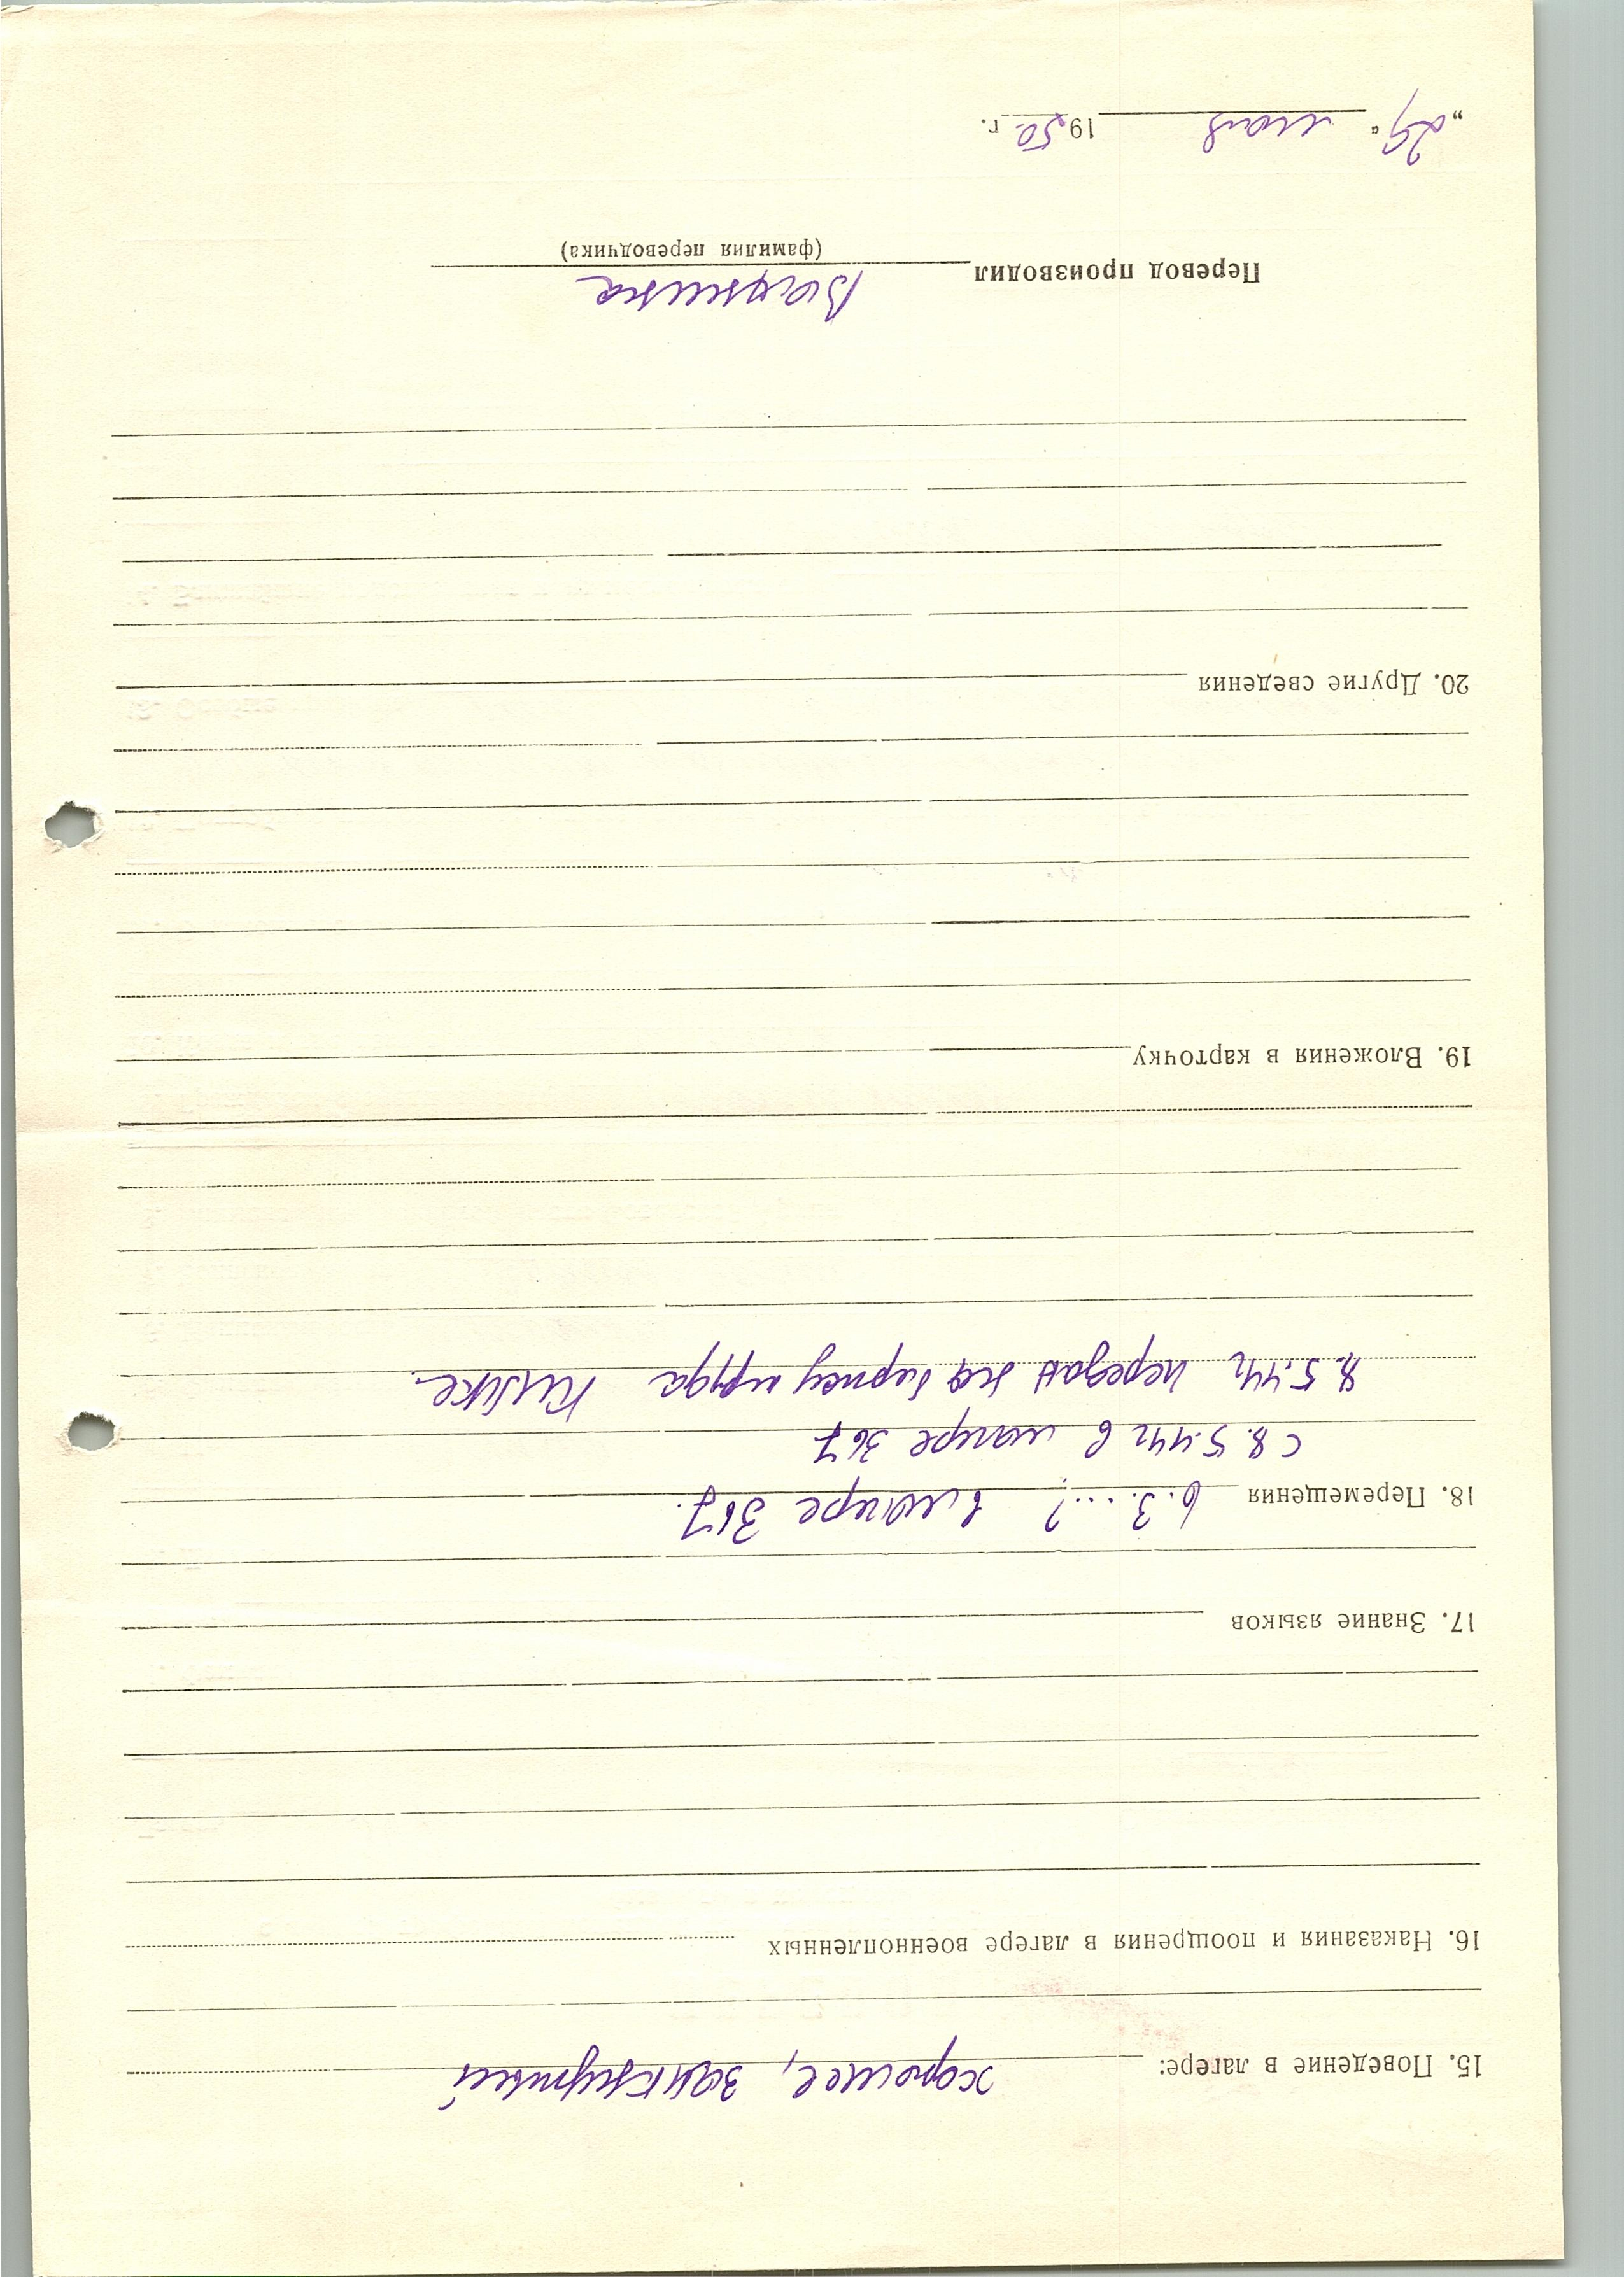 15. Поведение в лагере: хорошее, замкнутый
16. Наказания и поощрения в лагере военнопленных
17. Знание языков
18. Перемещения 6.3....? в лагере 367.
с 8.5.44г в лагере 367
8.5.44г передан на биржу труда
19. Вложения в карточку
20. Другие сведения
Перевод производил
(фамилия переводчика)
„29“ мая 1950 г.